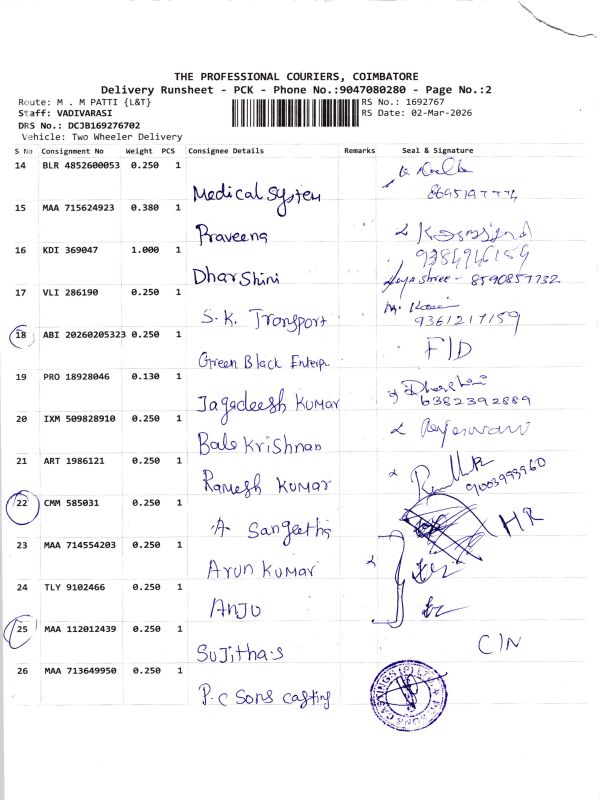 THE PROFESSIONAL COURIERS, COIMBATORE
Delivery Runsheet - PCK - Phone No.:9047080280 - Page No.:2
Route: M . M PATTI {L&T} RS No.: 1692767
Staff: VADIVARASI RS Date: 02-Mar-2026
DRS No.: DCJB169276702
Vehicle: Two Wheeler Delivery
S No Consignment No Weight PCS Consignee Details Remarks Seal & Signature
14 BLR 4852600053 0.250 1
Medical System
15 MAA 715624923 0.380 1
Praveena
16 KDI 369047 1.000 1
Dharshini Jayashree - 8590857732
17 VLI 286190 0.250 1
S.K. Transport 9361217159
18 ABI 20260205323 0.250 1 F/D
Green Black Enterp
19 PRO 18928046 0.130 1 Dharshini
Jagadeesh Kumar 6382392889
20 IXM 509828910 0.250 1
Bala Krishnan
21 ART 1986121 0.250 1
Ramesh Kumar 9003993960
22 CMM 585031 0.250 1 HR
A Sangeetha
23 MAA 714554203 0.250 1
Arun Kumar
24 TLY 9102466 0.250 1
Anju
25 MAA 112012439 0.250 1 C/N
Sujitha.s
26 MAA 713649950 0.250 1
P.C Sons casting